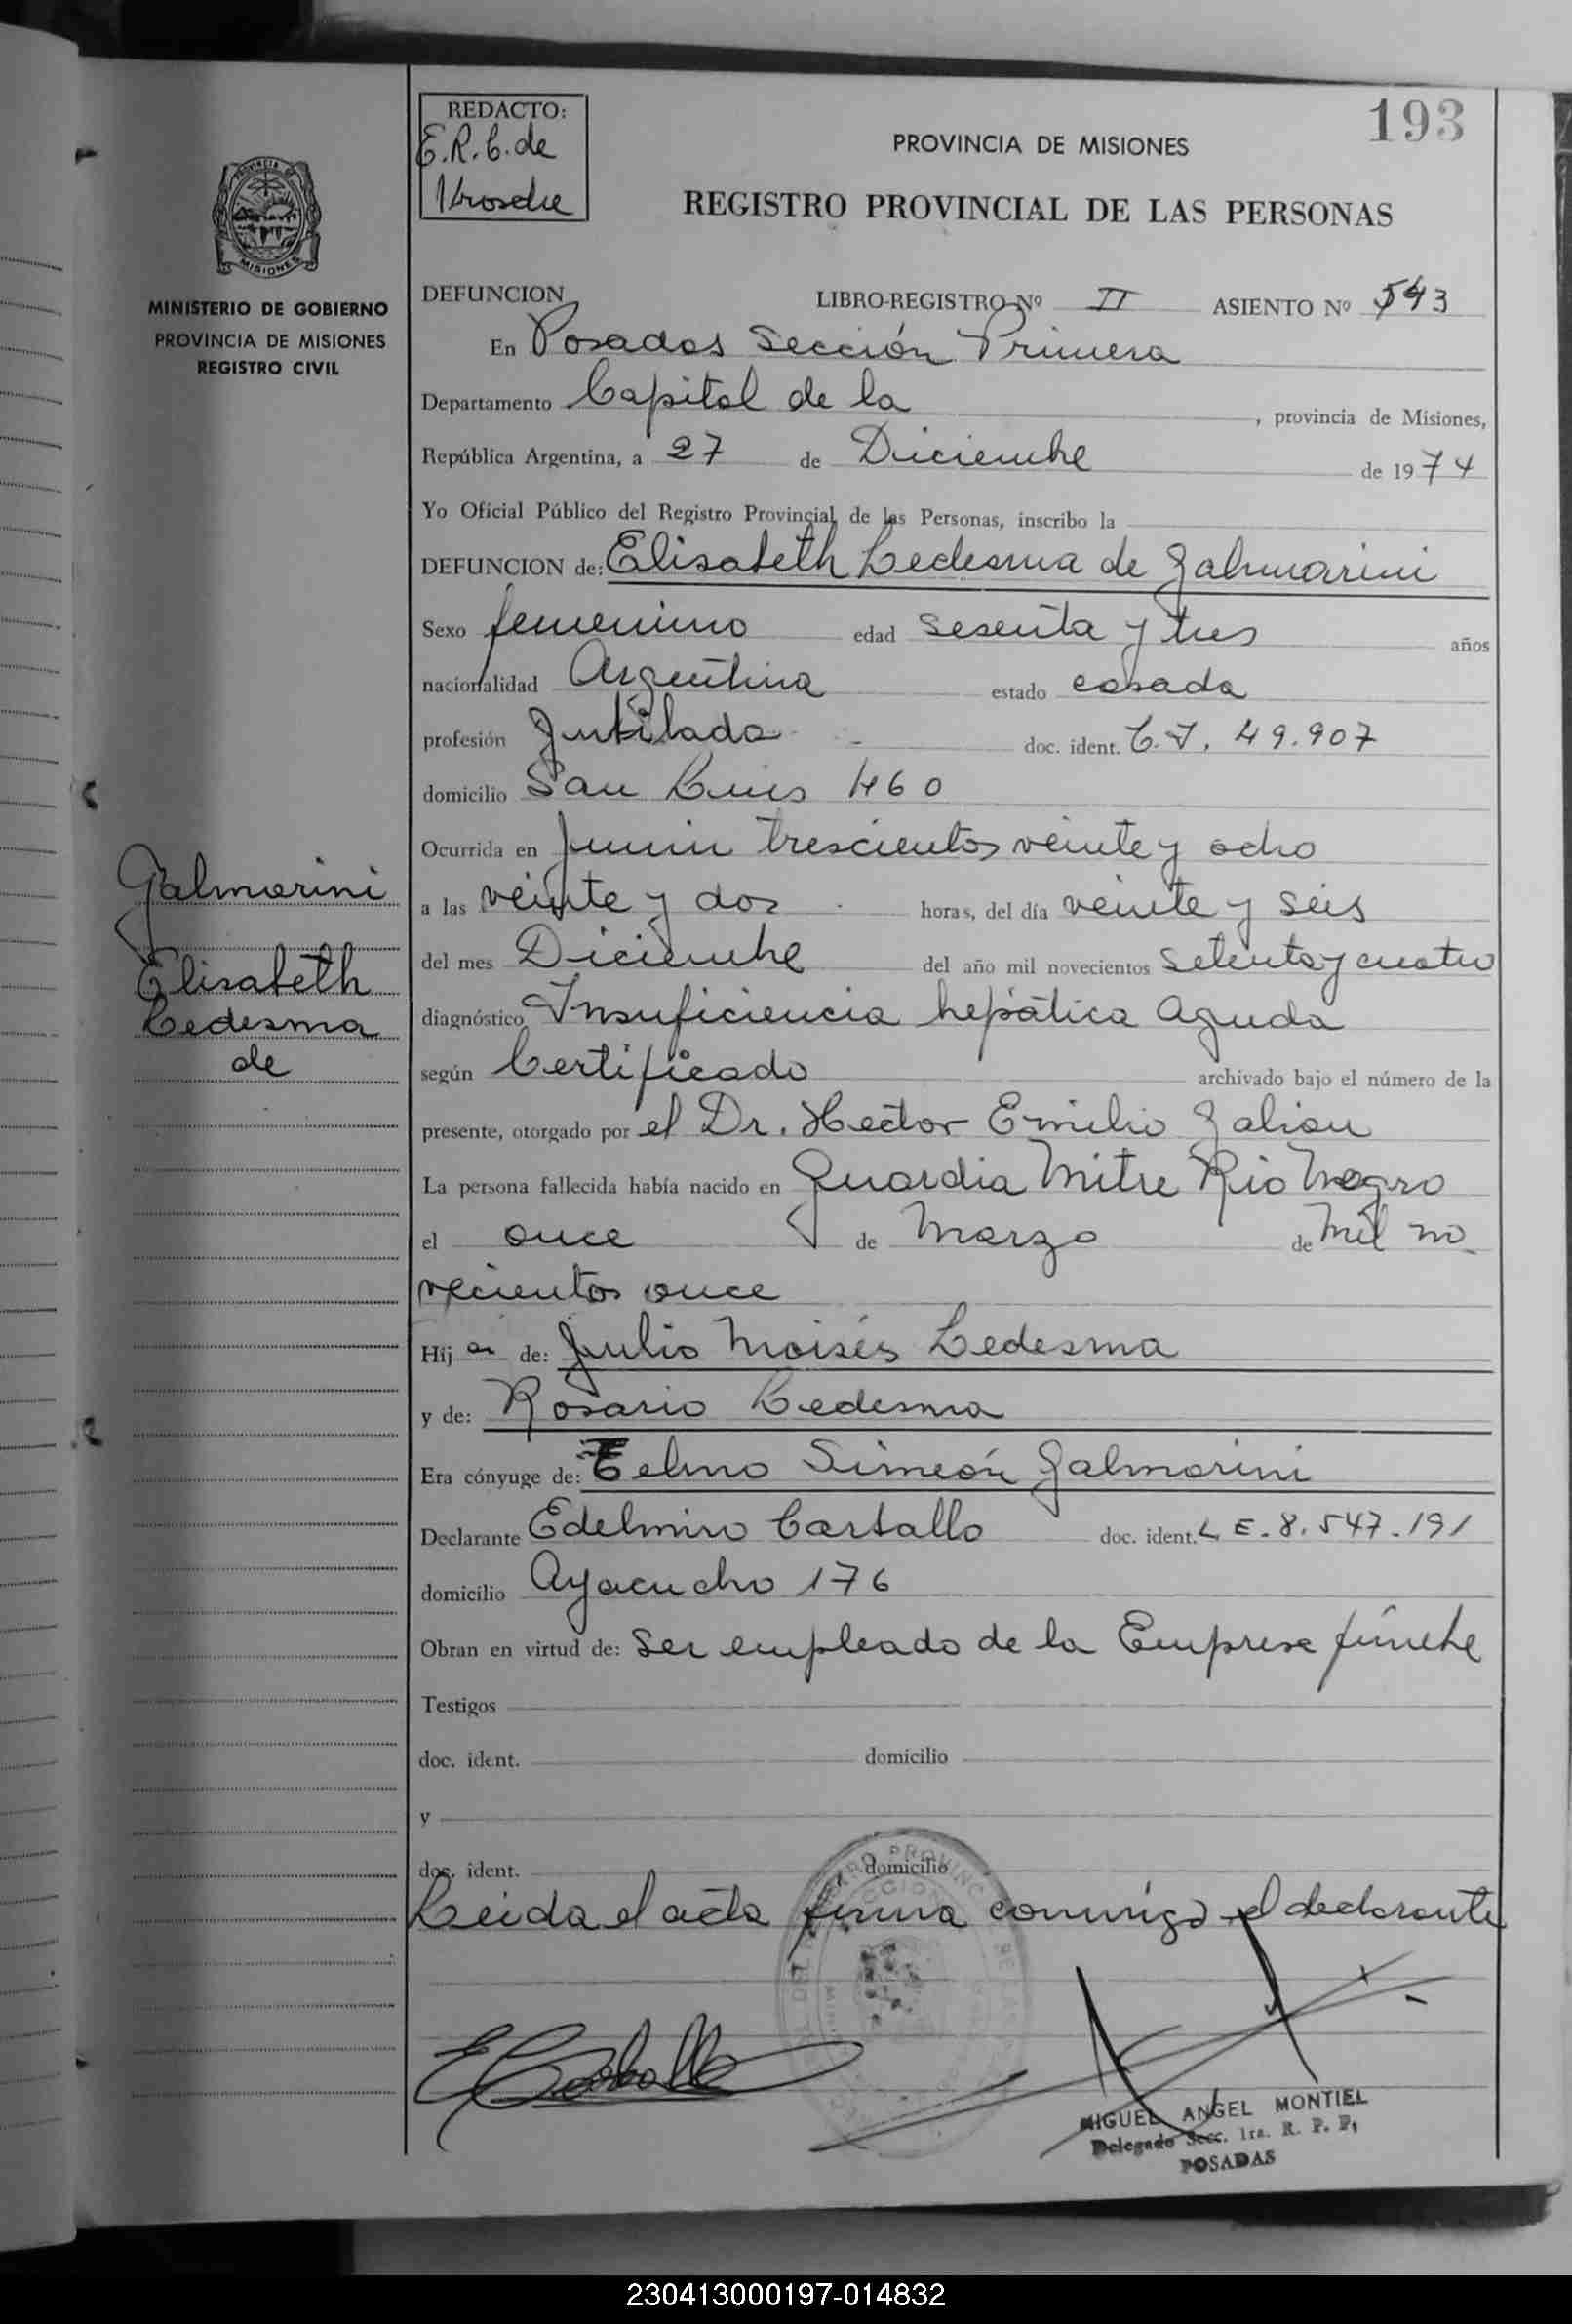 193
REDACTO:
E.R.C. de
PROVINCIA DE MISIONES
REGISTRO PROVINCIAL DE LAS PERSONAS
PROVINCIA DE
MISIONES
MINISTERIO DE GOBIERNO
PROVINCIA DE MISIONES
REGISTRO CIVIL
DEFUNCION LIBRO-REGISTRO Nº II ASIENTO Nº 543
En Posadas Sección Primera
Departamento Capital de la , provincia de Misiones,
República Argentina, a 27 de Diciembre de 1974
Yo Oficial Público del Registro Provincial de las Personas, inscribo la
DEFUNCION de: Elisabeth Ledesma de Galmarini
Sexo femenino edad sesenta y tres años
nacionalidad Argentina estado casada
profesión Jubilada doc. ident. C.I. 49.907
domicilio San Luis 460
Ocurrida en Junin trescientos veinte y ocho
a las veinte y dos horas, del día veinte y seis
del mes Diciembre del año mil novecientos setenta y cuatro
diagnóstico Insuficiencia hepática Aguda
según Certificado archivado bajo el número de la
presente, otorgado por el Dr. Hector Emilio
La persona fallecida había nacido en Guardia Mitre Rio Negro
el once de Marzo de mil no
vecientos once
Hij a de: Julio Moisés Ledesma
y de: Rosario Ledesma
Era cónyuge de: Telmo Simeón Galmarini
Declarante Edelmiro Carballo doc. ident. L E. 8.547.191
domicilio Ayacucho 176
Obran en virtud de: Ser empleado de la Empresa fúnebre
Testigos
doc. ident. domicilio
y
doc. ident. domicilio
Leida el acta firma conmigo el declarante
Galmarini
Elisabeth
Ledesma
de
ECarballo
MIGUEL ANGEL MONTIEL
Delegado Secc. 1ra. R. P. P.
POSADAS
230413000197-014832